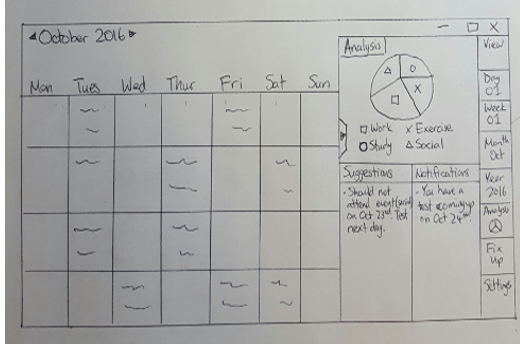 October 2016
Mon Tues Wed Thur Fri Sat Sun
Analysis
Work x Exercise
Study Social
Suggestions
- Should not
attend event(social)
on Oct 23rd. Test
next day.
Notifications
- You have a
test coming up
on Oct 24th.
View
Day
01
Week
01
Month
Oct
Year
2016
Analysis
Fix
Up
Settings